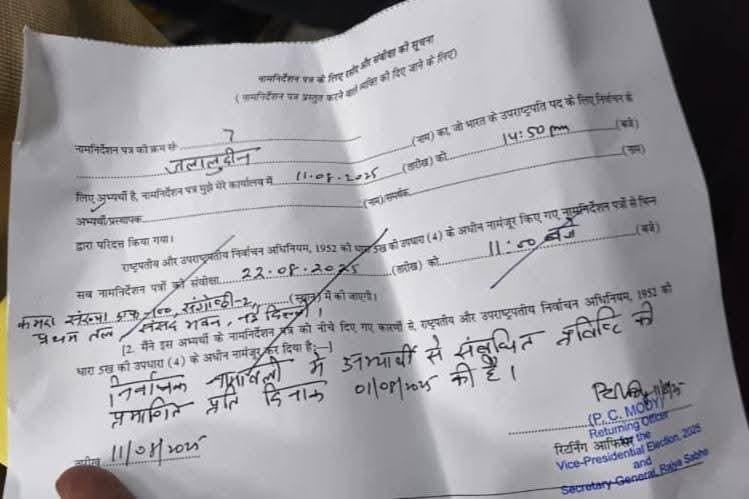 नामनिर्देशन पत्र के लिए रसीद और संवीक्षा की सूचना
( नामनिर्देशन पत्र प्रस्तुत करने वाले व्यक्ति को दिए जाने के लिए)
नामनिर्देशन पत्र की क्रम सं. 7
जलालुद्दीन (नाम) का, जो भारत के उपराष्ट्रपति पद के लिए निर्वाचन के
लिए अभ्यर्थी है, नामनिर्देशन पत्र मुझे मेरे कार्यालय में 11.08.2025 (तारीख) को 14:50 pm (बजे)
अभ्यर्थी/प्रस्थापक (नाम)/समर्थक (नाम)
द्वारा परिदत्त किया गया।
राष्ट्रपतीय और उपराष्ट्रपतीय निर्वाचन अधिनियम, 1952 की धारा 5ख की उपधारा (4) के अधीन नामंजूर किए गए नामनिर्देशन पत्रों से भिन्न
सब नामनिर्देशन पत्रों की संवीक्षा 22.08.2025 (तारीख) को 11:00 बजे (बजे)
कमरा संख्या संगोष्ठी-2, (स्थान) में की जाएगी।
प्रथम तल संसद भवन, नई दिल्ली।
[2. मैंने इस अभ्यर्थी के नामनिर्देशन पत्र को नीचे दिए गए कारणों से, राष्ट्रपतीय और उपराष्ट्रपतीय निर्वाचन अधिनियम, 1952 की
धारा 5ख की उपधारा (4) के अधीन नामंजूर कर दिया है:—]
निर्वाचक नामावली में अभ्यार्थी से संबंधित प्रविष्टि की
प्रमाणित प्रति दिनांक 01/08/2025 की है।
तारीख 11/08/2025
(P. C. MODY)
Returning Officer
रिटर्निंग आफिसर the
Vice-Presidential Election, 2025
and
Secretary-General, Rajya Sabha